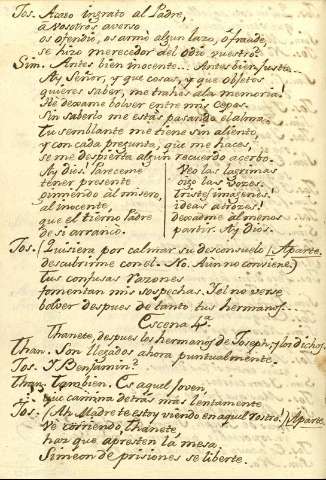 Jos. Acaso ingrato al Padre,
a vosotros averso
os ofendio, os armó algun lazo, ó fraude,
se hizo merecedor del odio vuestro?
Sim. Antes bien inocente... Antes bien justo...
Ay Señor, y que cosas, y que objetos
quieres saber, me trahes ala memoria!
No dexame bolver entre mis cepos.
Sin saberlo me estás pasando el alma:
Tu semblante me tiene sin aliento,
y con cada pregunta, que me haces,
se me despierta algun recuerdo acerbo.
Ay Dios! Pareceme
tener presente
gimiendo al misero,
al inocente,
que el tierno Padre
de si arrancó.
Veo las lagrimas
oigo las voces.
Tristes imagenes!
ideas atrozes!
dexadme almenos
partir. Ay Dios.
Jos. (Quisiera por calmar su desconsuelo (Aparte.
descubrirme con el. No. Aun no conviene.)
Tus confusas razones
fomentan mis sospechas. Y el no verse
bolver despues de tanto tus hermanos...
Escena 4ª
Thanete, despues los hermanos de Joseph, y los dichos.
Than. Son llegados ahora puntualmente.
Jos. Y Benjamin?
Than. Tambien. Es aquel joven,
que camina detrás mas lentamente
Jos. (Ah Madre te estoy viendo en aquel rostro.) (Aparte
Ve corriendo, Thanete
haz que apresten la mesa.
Simeon de prisiones se liberte.